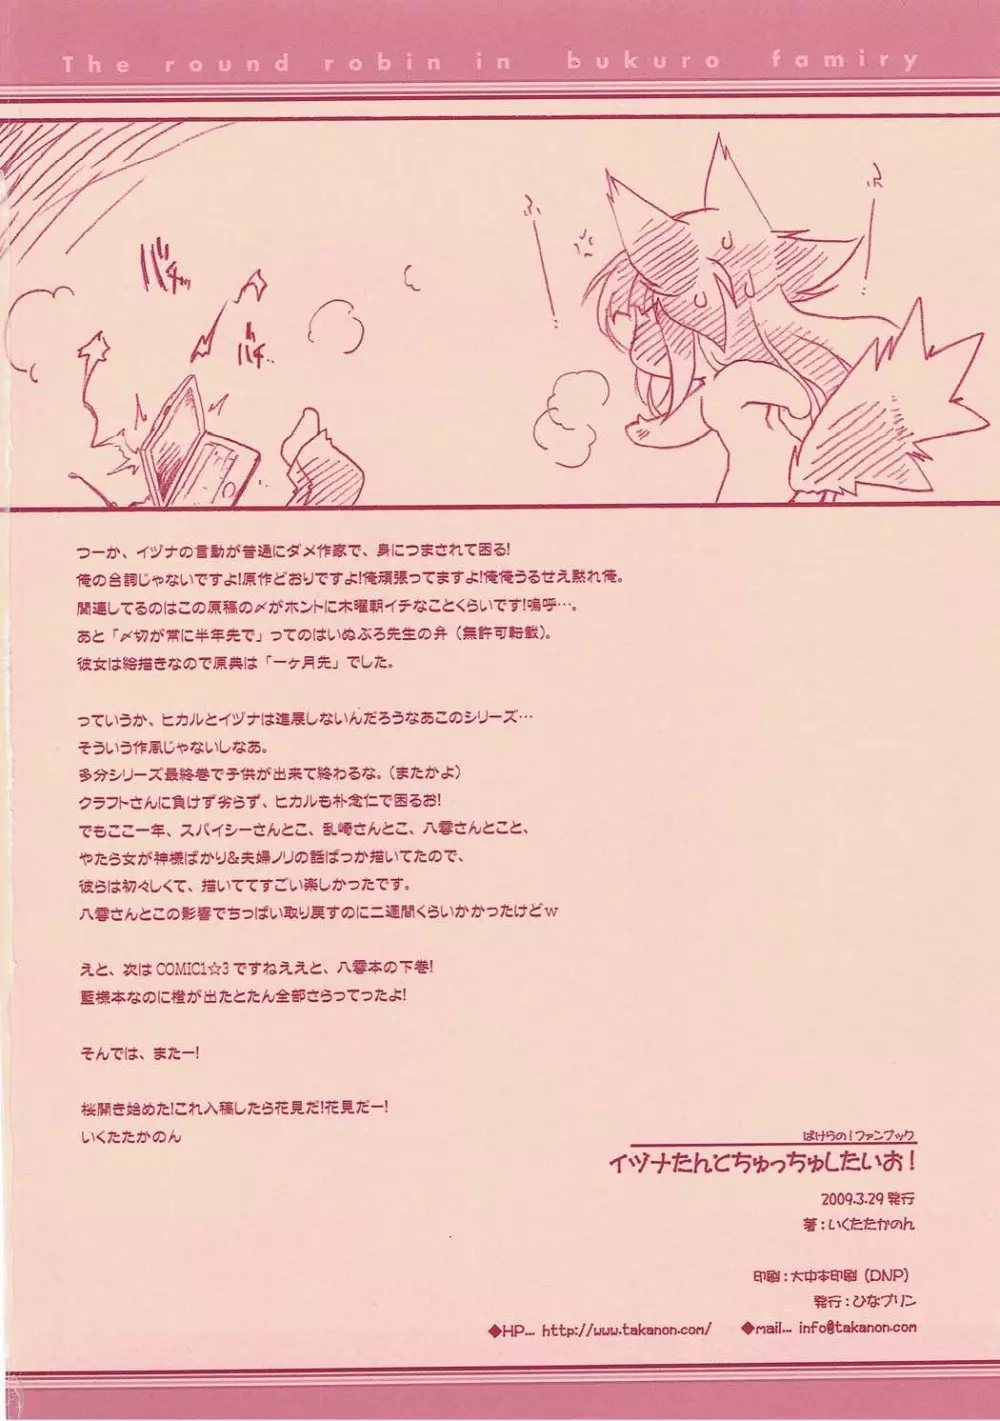 The round robin in bukuro famiry
バチッ
バチ..
ふ
ん
つーか、イヅナの言動が普通にダメ作家で、身につまされて困る!
俺の台詞じゃないですよ!原作どおりですよ!俺頑張ってますよ!俺俺うるせえ黙れ俺。
関連してるのはこの原稿の〆がホントに木曜朝イチなことくらいです!嗚呼…。
あと「〆切が常に半年先で」ってのはいぬぶろ先生の弁(無許可転載)。
彼女は絵描きなので原典は「一ヶ月先」でした。
っていうか、ヒカルとイヅナは進展しないんだろうなあこのシリーズ…
そういう作風じゃないしなあ。
多分シリーズ最終巻で子供が出来て終わるな。(またかよ)
クラフトさんに負けず劣らず、ヒカルも朴念仁で困るお!
でもここ一年、スパイシーさんとこ、乱崎さんとこ、八雲さんとこと、
やたら女が神様ばかり&夫婦ノリの話ばっか描いてたので、
彼らは初々しくて、描いててすごい楽しかったです。
八雲さんとこの影響でちっぱい取り戻すのに二週間くらいかかったけどw
えと、次は COMIC1☆3 ですねええと、八雲本の下巻!
藍様本なのに橙が出たとたん全部さらってったよ!
そんでは、またー!
桜開き始めた!これ入稿したら花見だ!花見だー!
いくたたかのん
ばけらの!ファンブック
イヅナたんとちゅっちゅしたいお!
2009.3.29 発行
著:いくたたかのん
印刷:大中本印刷(DNP)
発行:ひなプリン
◆HP... http://www.takanon.com/ ◆mail... info@takanon.com